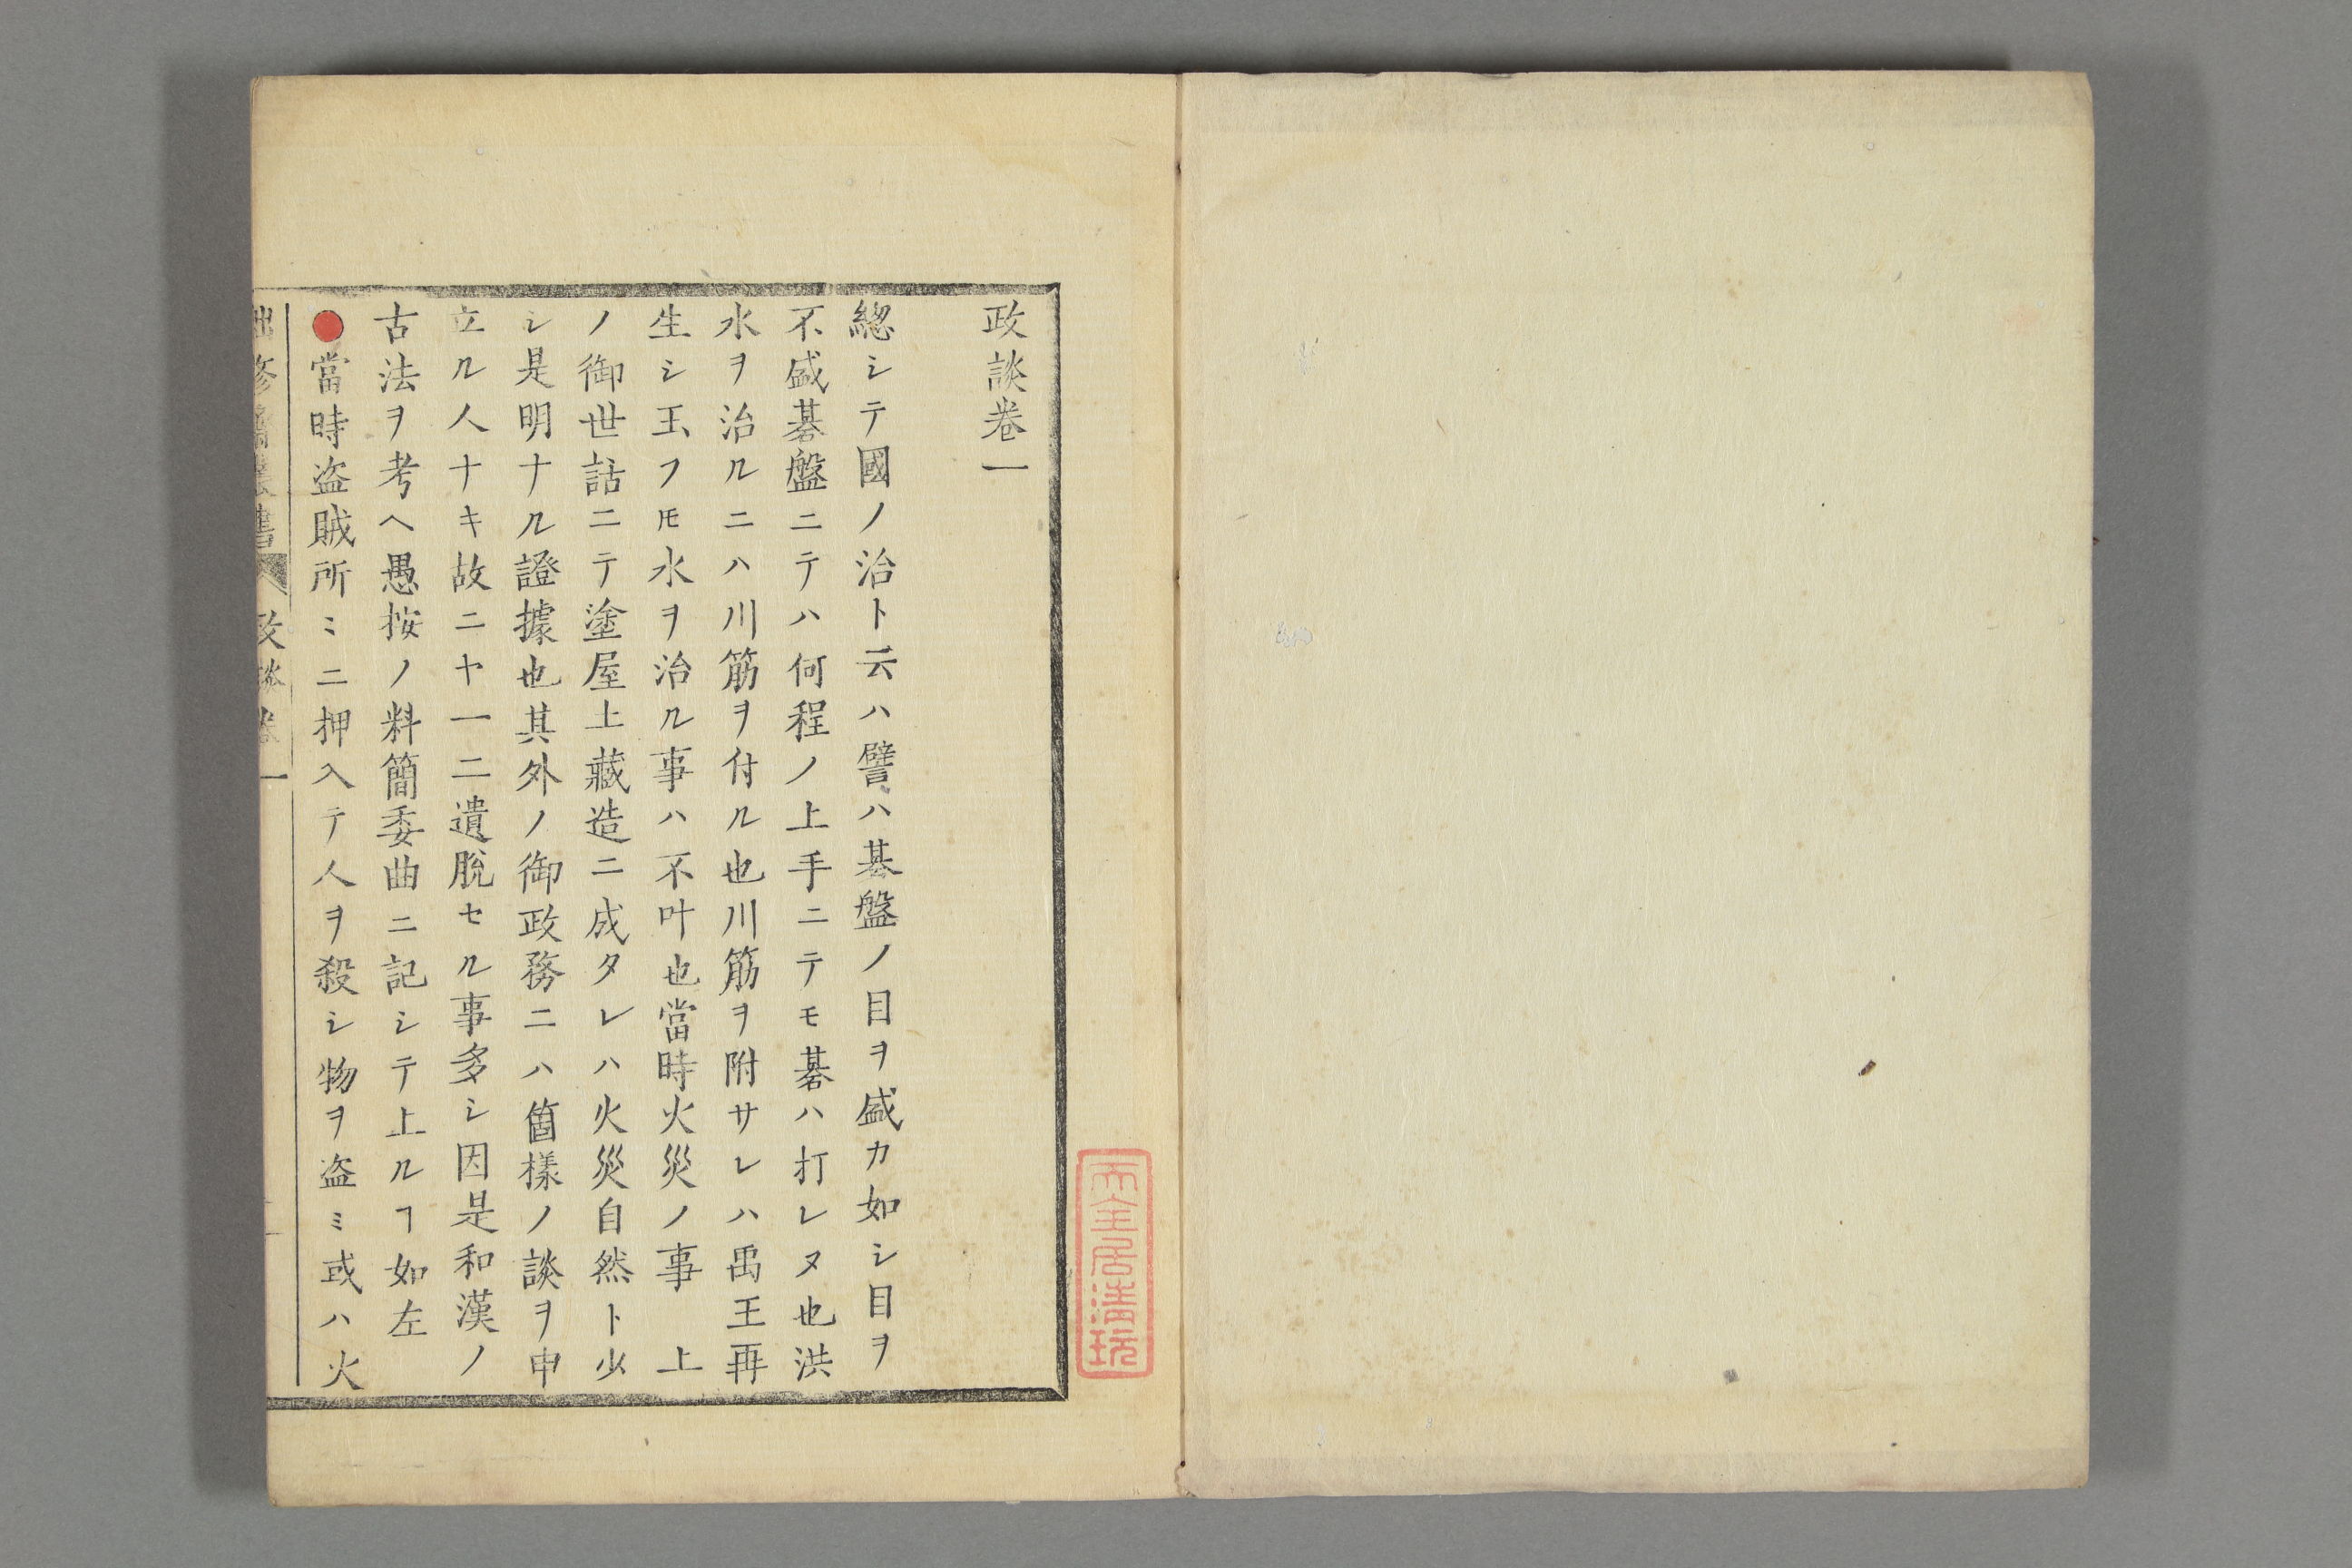 政談卷一
總シテ國ノ治ト云ハ譬ハ碁盤ノ目ヲ盛カ如シ目ヲ
不盛碁盤ニテハ何程ノ上手ニテモ碁ハ打レヌ也洪
水ヲ治ルニハ川筋ヲ付ル也川筋ヲ附サレハ禹王再
生シ玉フ𪜈水ヲ治ル事ハ不叶也當時火災ノ事 上
ノ御世話ニテ塗屋土藏造ニ成タレハ火災自然ト少
シ是明ナル證據也其外ノ御政務ニハ箇樣ノ談ヲ申
立ル人ナキ故ニヤ一二遺脫セル事多シ因是和漢ノ
古法ヲ考ヘ愚按ノ料簡委曲ニ記シテ上ルヿ如左
當時盗賊所〻ニ押入テ人ヲ殺シ物ヲ盗ミ或ハ火
政談卷一